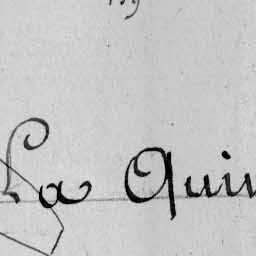 La Quin